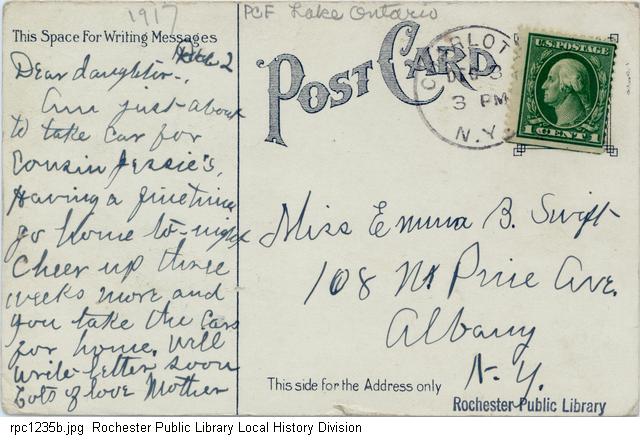 1917
PCF Lake Ontario
This Space For Writing Messages
POST CARD
Dec 2
Dear daughter.
Am just about
to take car for
Cousin Jessie's,
Having a fine time
go home to-night
Cheer up three
weeks more and
you take the cars
for home. Will
write letter soon
Lots of love Mother
U.S. POSTAGE
1 CENT 1
3 PM
N.Y.
Miss Emma B. Swift
108 No Pine Ave.
Albany
N.Y.
This side for the Address only
Rochester Public Library
rpc1235b.jpg Rochester Public Library Local History Division